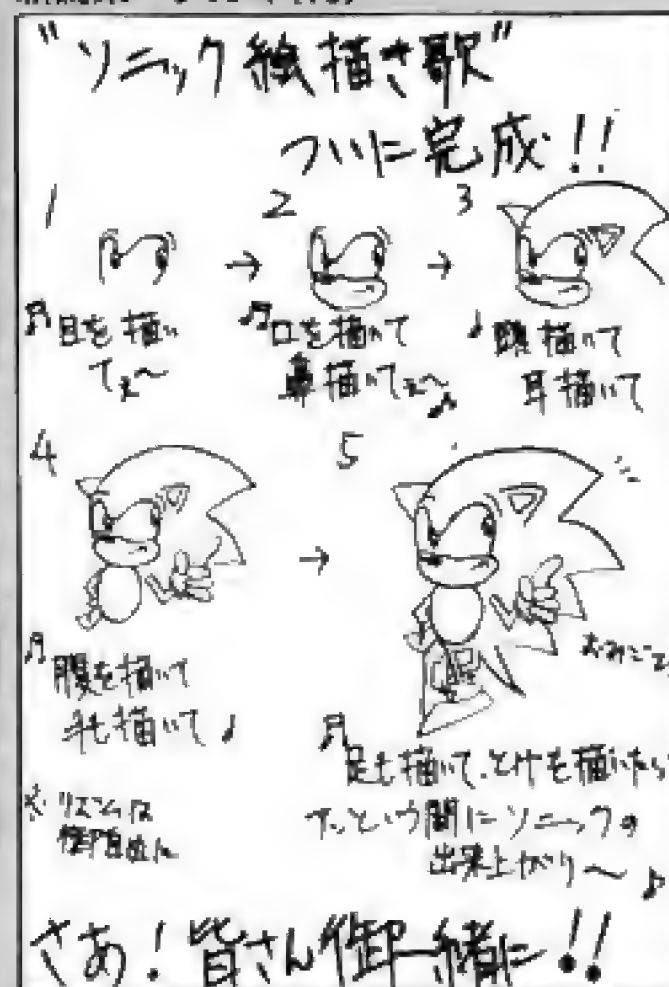 "ソニック絵描き歌"
ついに完成!!
1
2
3
♬目を描い
てぇ〜
♬口を描いて
鼻描いてぇ〜♪
♪頭描いて
耳描いて
4
5
♬腹を描いて
手も描いて♪
おみごと
※リズムは
御自由に
♬足も描いて、とげも描いたら
アッという間にソニックの
出来上がり〜♪
さあ!皆さん御一緒に!!